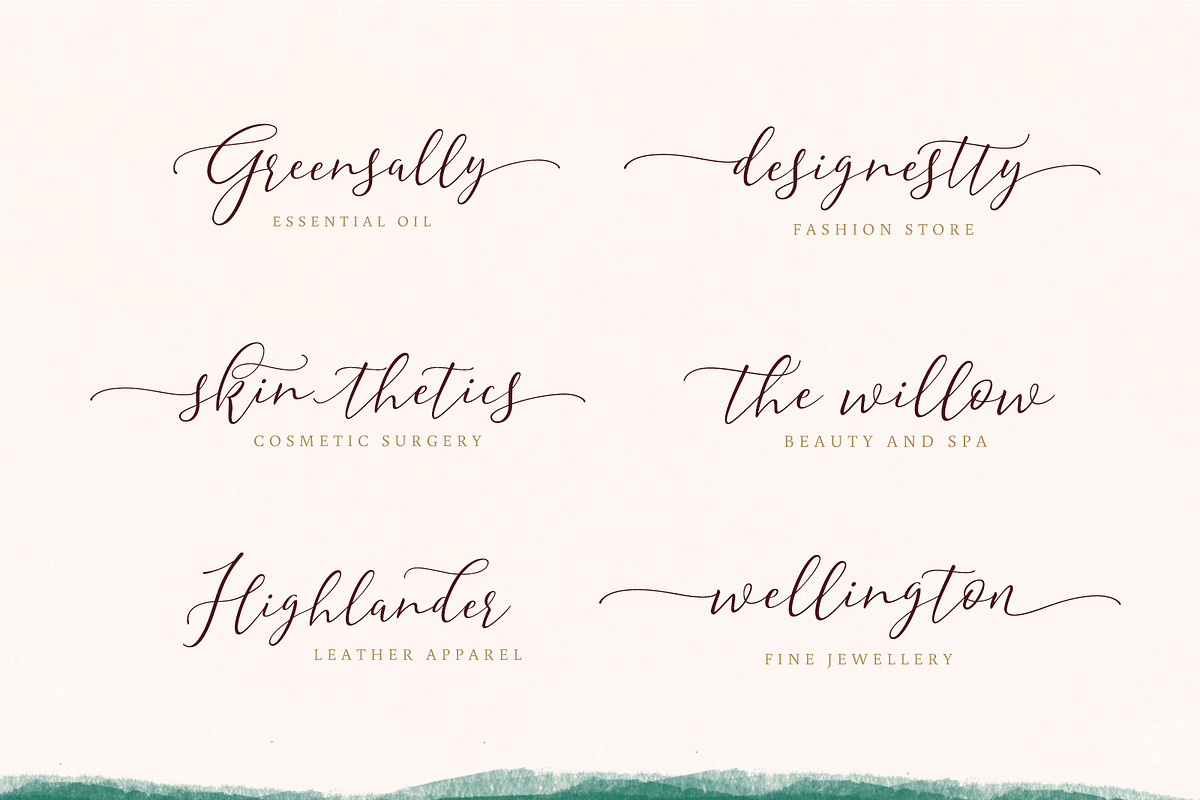 Greensally
ESSENTIAL OIL
designestty
FASHION STORE
skin thetics
COSMETIC SURGERY
the willow
BEAUTY AND SPA
Highlander
LEATHER APPAREL
wellington
FINE JEWELLERY